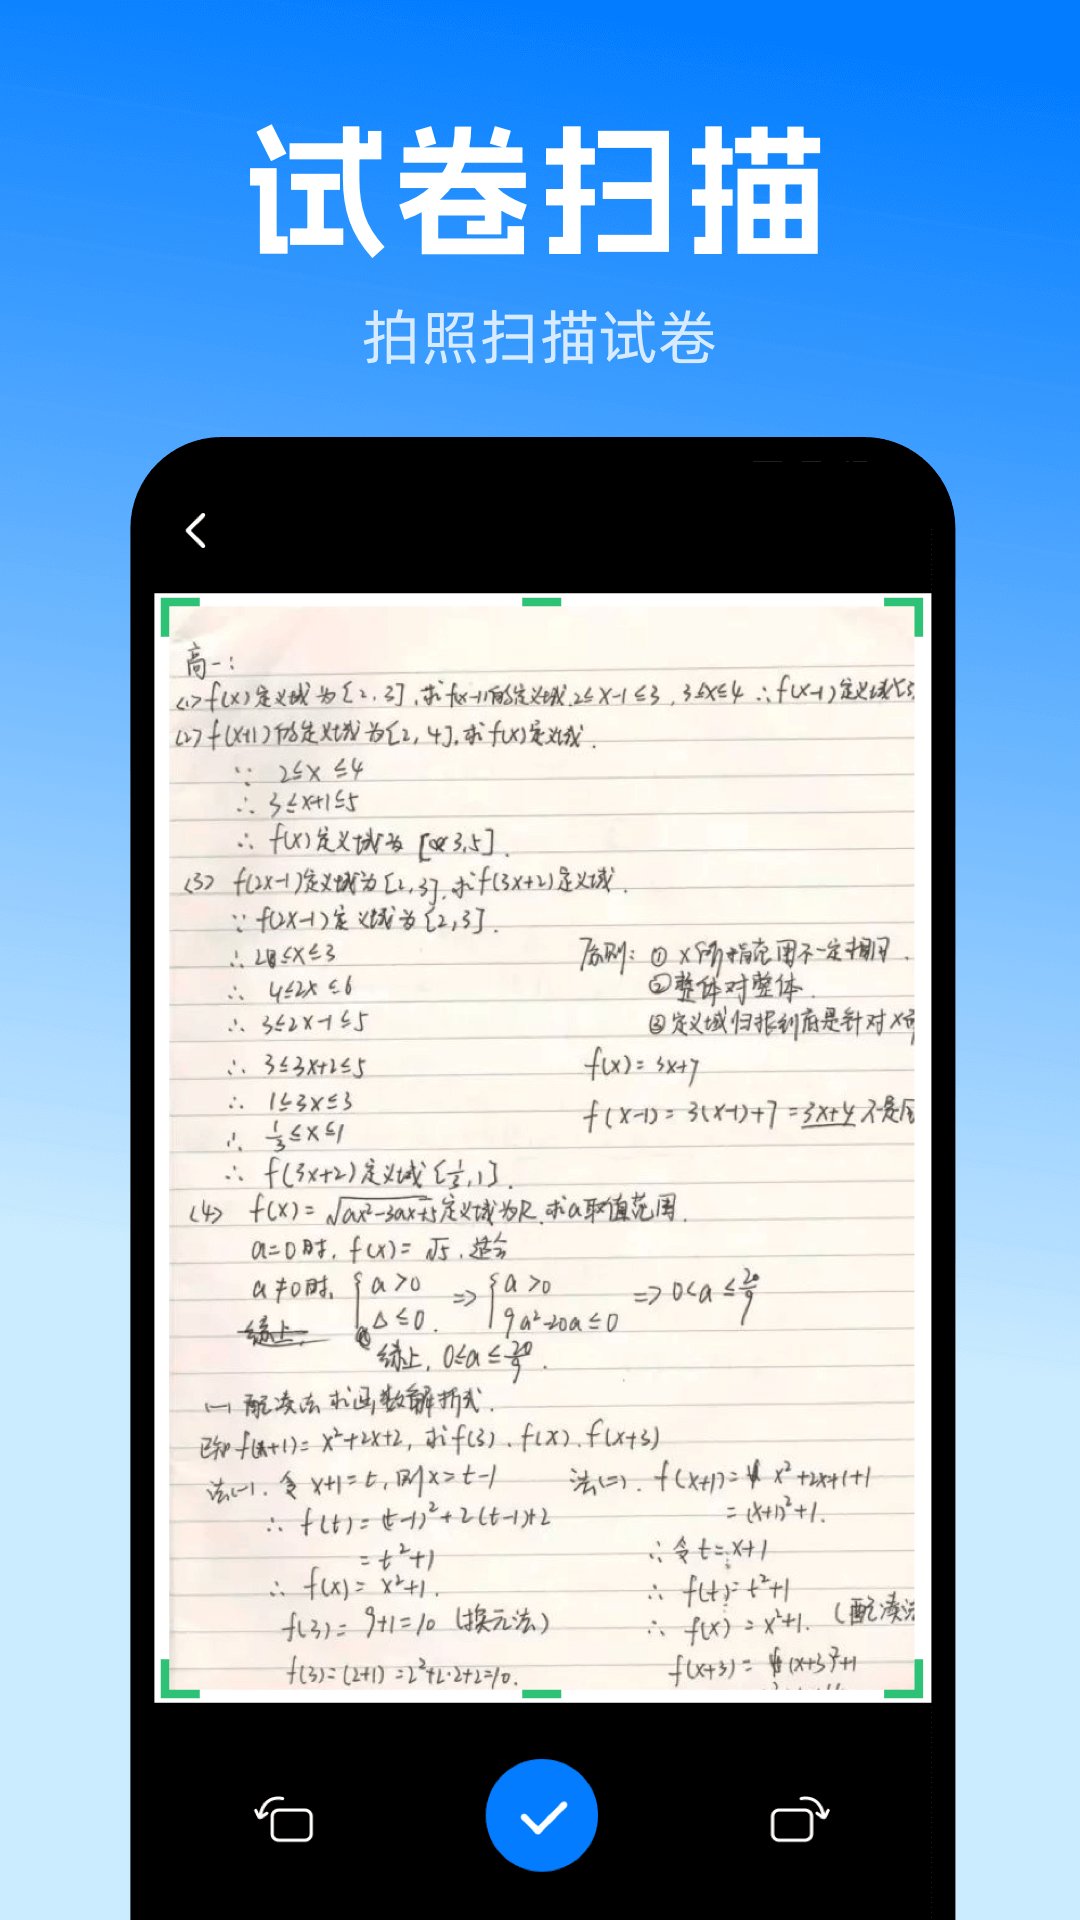 试卷扫描
拍照扫描试卷
高一:
(1) f(x)定义域为[2,3],求f(x-1)的定义域.2≤x-1≤3,3≤x≤4 ∴f(x-1)定义域[3,
(2) f(x+1)的定义域为[2,4],求f(x)定义域.
∵ 2≤x≤4
∴ 3≤x+1≤5
∴ f(x)定义域为 [3,5].
(3) f(2x-1)定义域为[2,3],求f(3x+2)定义域.
∵ f(2x-1)定义域为[2,3].
∴ 2≤x≤3
原则: ① x所指范围不一定相同.
∴ 4≤2x≤6
②整体对整体.
∴ 3≤2x-1≤5
③定义域归根到底是针对x而
∴ 3≤3x+2≤5
f(x)=3x+7
∴ 1≤3x≤3
f(x-1)=3(x-1)+7=3x+4 不是同
∴ 1/3≤x≤1
∴ f(3x+2)定义域[1/3,1].
(4) f(x)=√ax²-3ax+5定义域为R,求a取值范围.
a=0时,f(x)=√5,适合
a≠0时, {a>0 => {a>0 => 0<a≤20/9
Δ≤0. 9a²-20a≤0
综上, 0≤a≤20/9.
(一)配凑法求函数解析式.
已知f(x+1)=x²+2x+2,求f(3).f(x).f(x+3)
法(一).令x+1=t,则x=t-1
法(二). f(x+1)= x²+2x+1+1
∴ f(t)=(t-1)²+2(t-1)+2
=(x+1)²+1.
=t²+1
∴令t=x+1
∴ f(x)=x²+1.
∴ f(t)=t²+1
f(3)=9+1=10 (换元法)
∴ f(x)=x²+1. (配凑法
f(3)=(2+1)=2²+2·2+2=10.
f(x+3)=(x+3)²+1